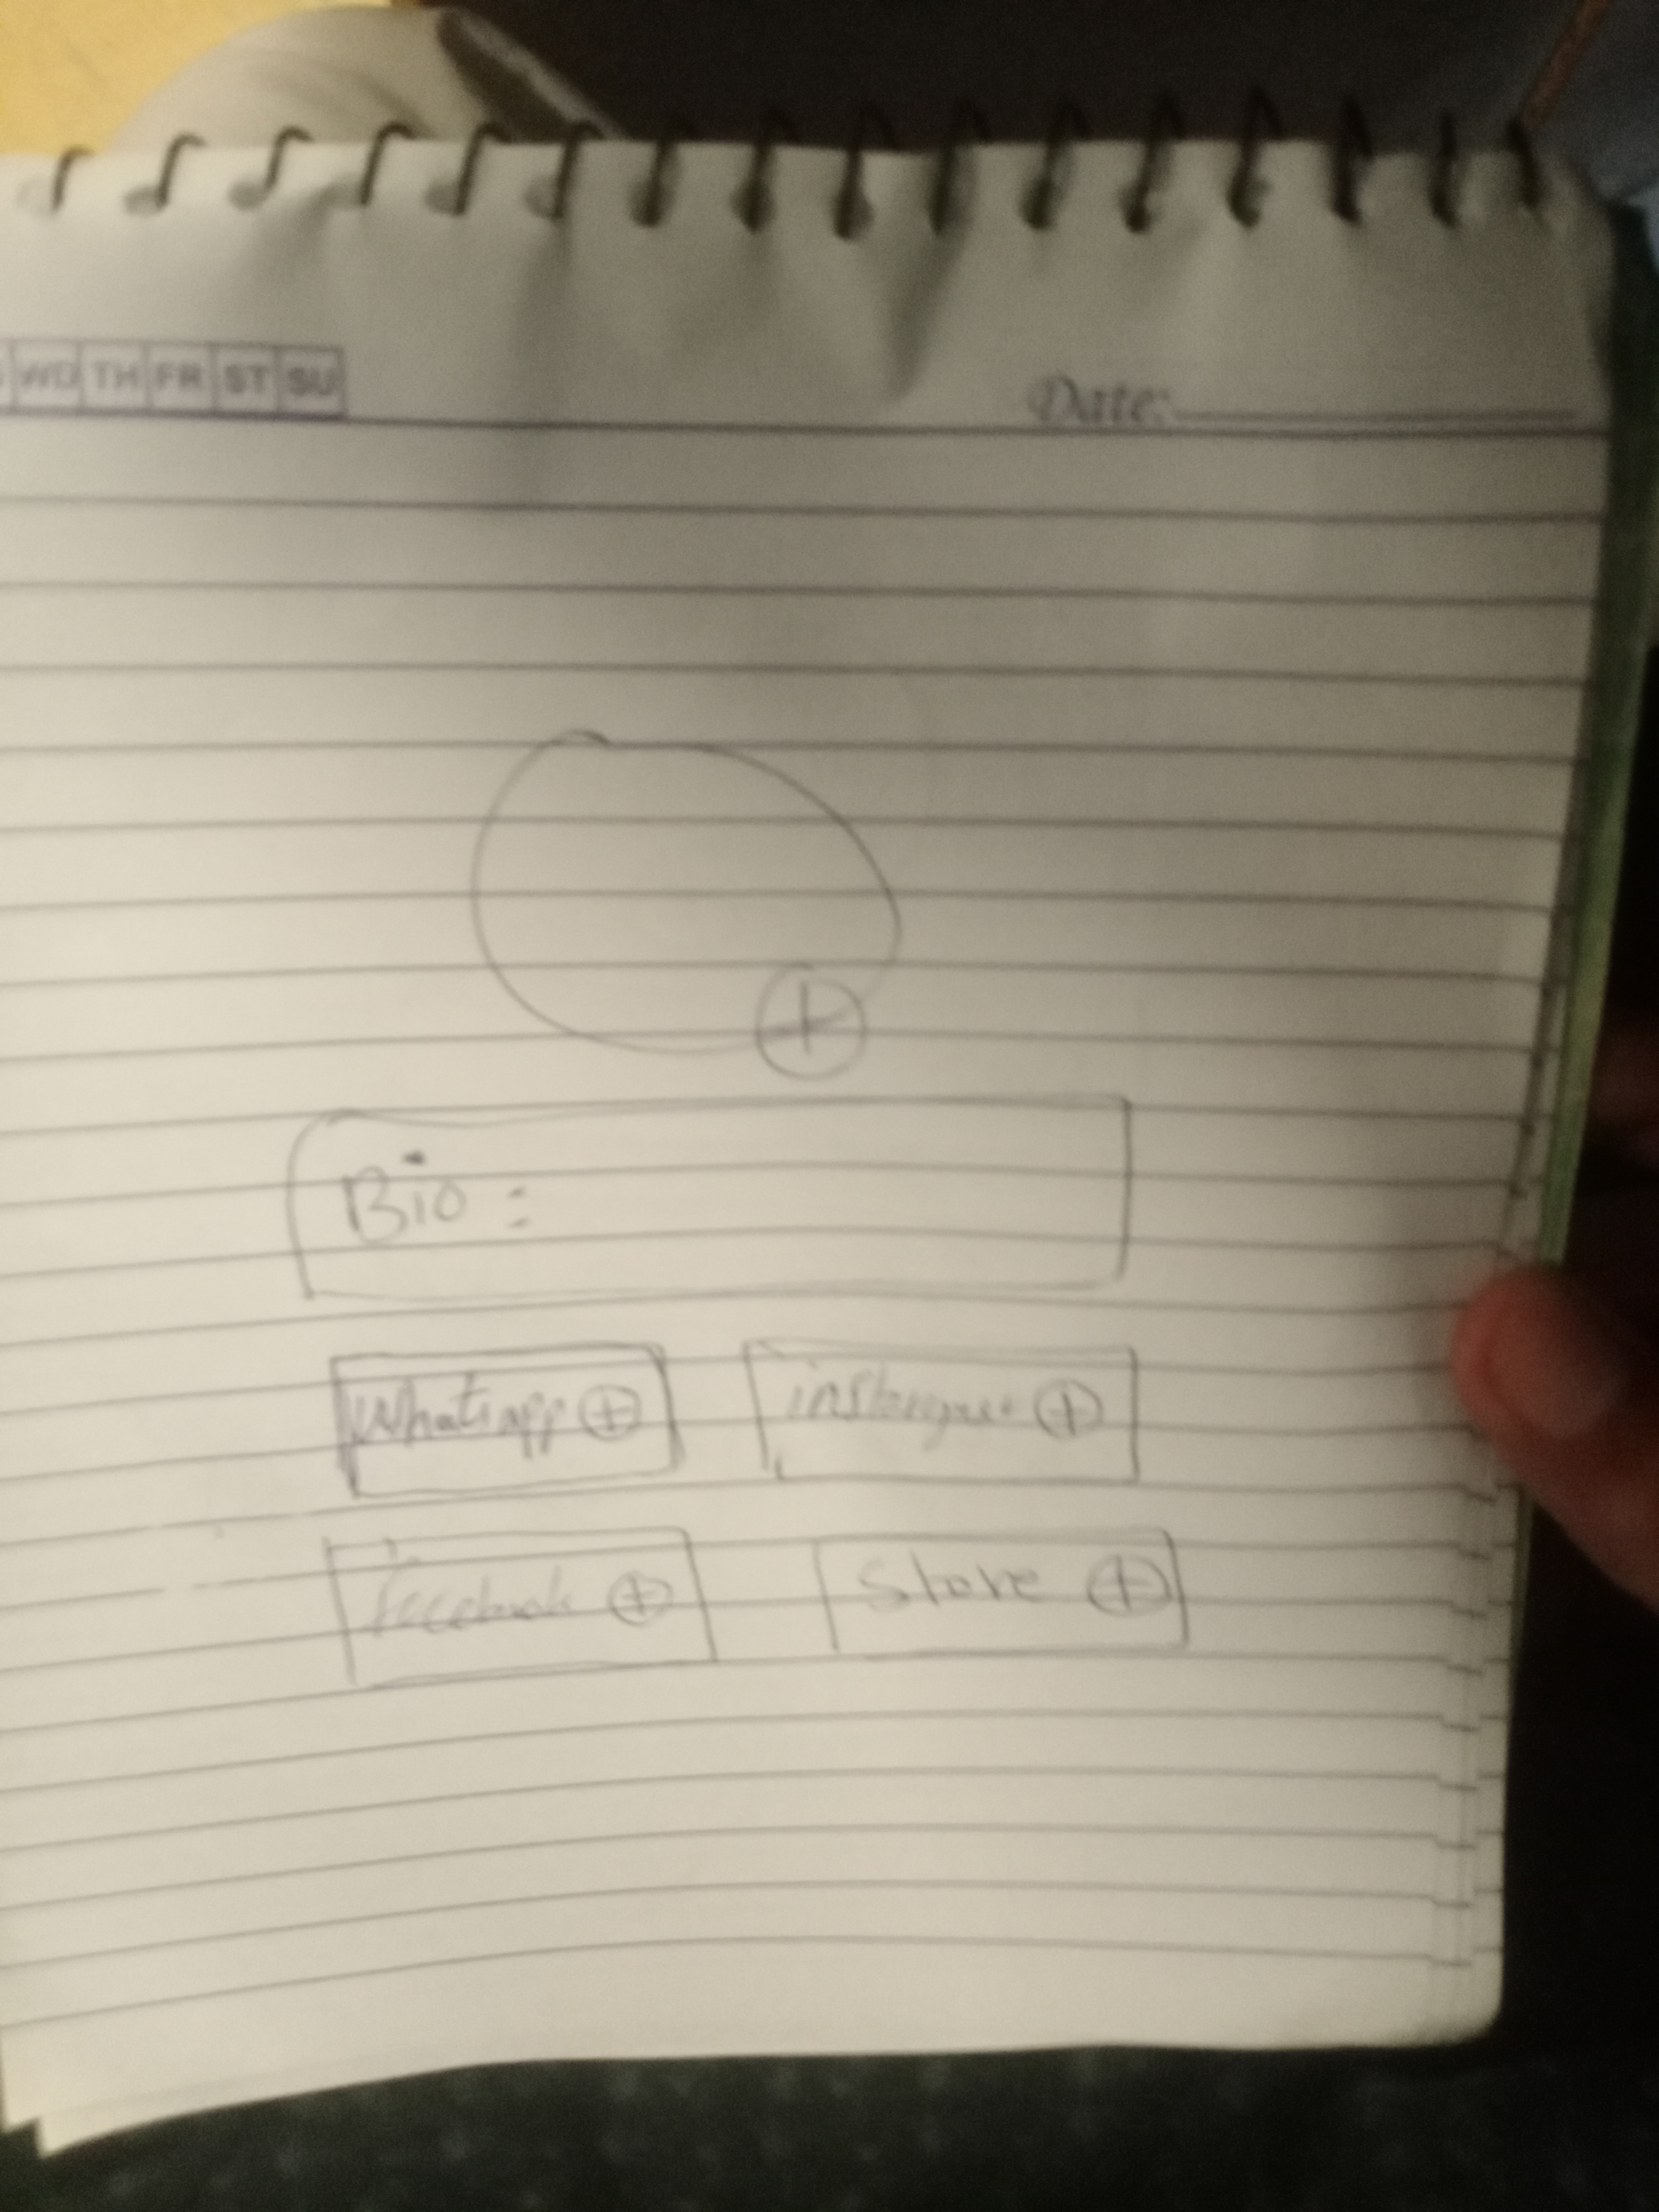 WD TH FR ST SU
Date:
Bio :
Whatsapp +
+
facebook +
Store +